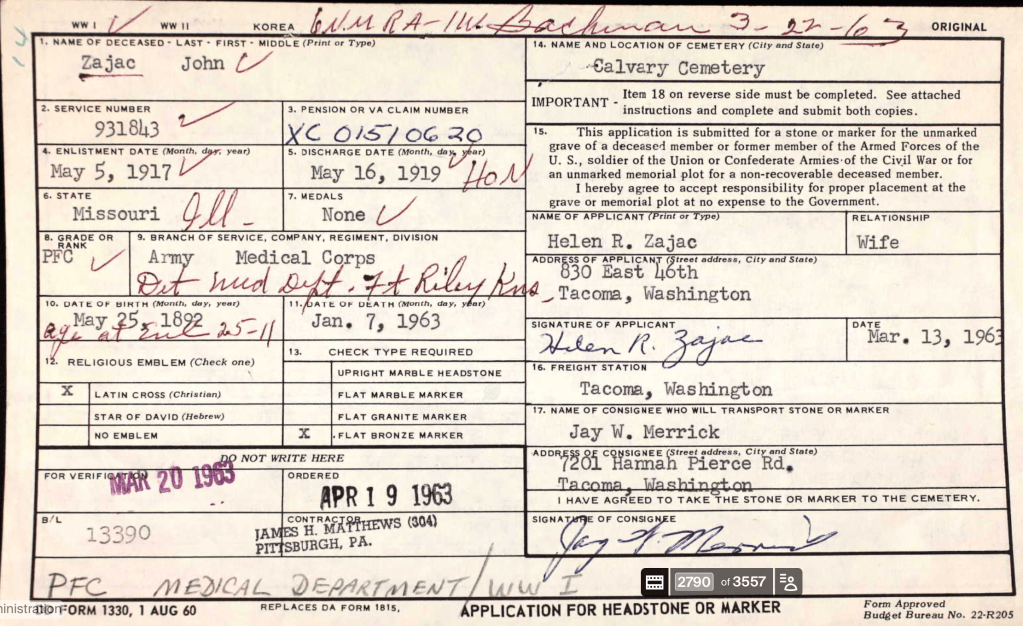 WW I √ WW II KOREA 6NMRA-IW Bachman 3-22-63 ORIGINAL
1. NAME OF DECEASED - LAST - FIRST - MIDDLE (Print or Type)
Zajac John √
2. SERVICE NUMBER
931843 √
3. PENSION OR VA CLAIM NUMBER
XC 01510620
4. ENLISTMENT DATE (Month, day, year)
May 5, 1917 √
5. DISCHARGE DATE (Month, day, year)
May 16, 1919 √ HON
6. STATE
Missouri Ill-
7. MEDALS
None √
8. GRADE OR RANK
PFC √
9. BRANCH OF SERVICE, COMPANY, REGIMENT, DIVISION
Army Medical Corps
Det Med Dept. Ft Riley Kns
10. DATE OF BIRTH (Month, day, year)
May 25, 1892
age at Enl 25-11
11. DATE OF DEATH (Month, day, year)
Jan. 7, 1963
12. RELIGIOUS EMBLEM (Check one)
X LATIN CROSS (Christian)
STAR OF DAVID (Hebrew)
NO EMBLEM
13. CHECK TYPE REQUIRED
UPRIGHT MARBLE HEADSTONE
FLAT MARBLE MARKER
FLAT GRANITE MARKER
X FLAT BRONZE MARKER
DO NOT WRITE HERE
FOR VERIFICATION
MAR 20 1963
ORDERED
APR 19 1963
B/L
13390
CONTRACTOR
JAMES H. MATTHEWS (304)
PITTSBURGH, PA.
14. NAME AND LOCATION OF CEMETERY (City and State)
Calvary Cemetery
IMPORTANT - Item 18 on reverse side must be completed. See attached
instructions and complete and submit both copies.
15. This application is submitted for a stone or marker for the unmarked
grave of a deceased member or former member of the Armed Forces of the
U. S., soldier of the Union or Confederate Armies of the Civil War or for
an unmarked memorial plot for a non-recoverable deceased member.
I hereby agree to accept responsibility for proper placement at the
grave or memorial plot at no expense to the Government.
NAME OF APPLICANT (Print or Type)
Helen R. Zajac
RELATIONSHIP
Wife
ADDRESS OF APPLICANT (Street address, City and State)
830 East 46th
Tacoma, Washington
SIGNATURE OF APPLICANT
Helen R. Zajac
DATE
Mar. 13, 1963
16. FREIGHT STATION
Tacoma, Washington
17. NAME OF CONSIGNEE WHO WILL TRANSPORT STONE OR MARKER
Jay W. Merrick
ADDRESS OF CONSIGNEE (Street address, City and State)
7201 Hannah Pierce Rd.
Tacoma, Washington
I HAVE AGREED TO TAKE THE STONE OR MARKER TO THE CEMETERY.
SIGNATURE OF CONSIGNEE
Jay W Merrick
PFC MEDICAL DEPARTMENT/WW I
2790 of 3557
ministration
FORM 1330, 1 AUG 60 REPLACES DA FORM 1815, APPLICATION FOR HEADSTONE OR MARKER
Form Approved
Budget Bureau No. 22-R205